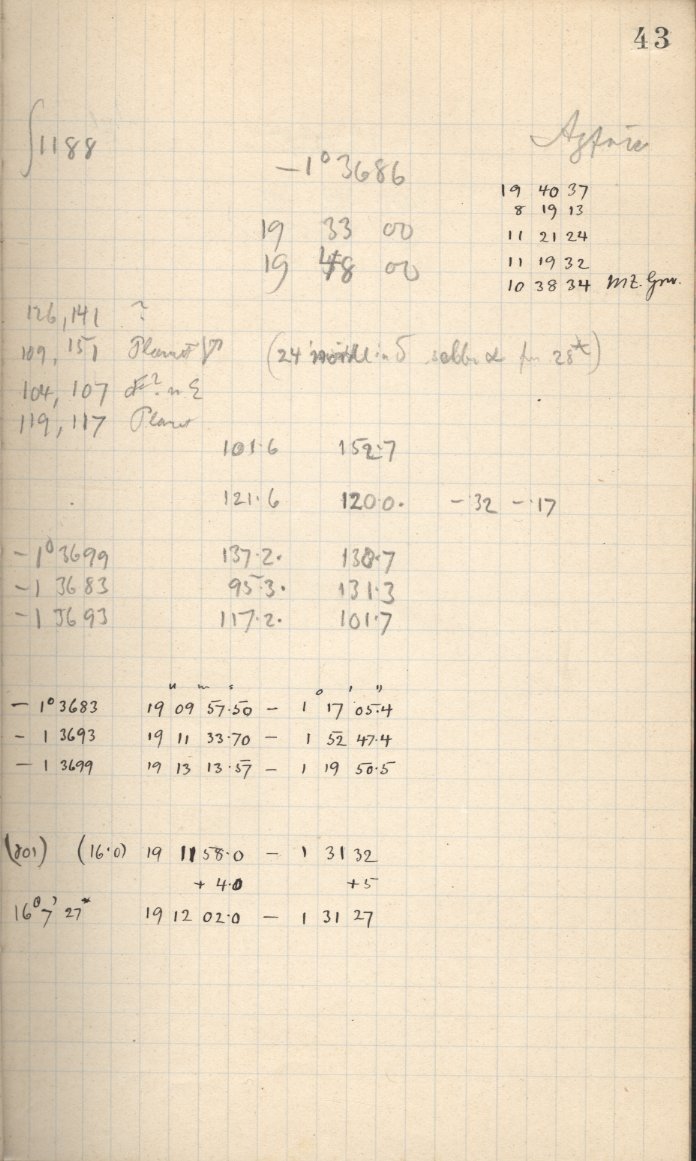 43
∫1188
− 1° 3686
19 40 37
8 19 13
19 33 00
11 21 24
19 48 00
11 19 32
10 38 34 MZ. Grw.
126, 141 ?
109, 151 Planet
(24 in δ for 28
104, 107
119, 117 Planet
101.6 152.7
121.6 120.0. −.32 −.17
− 1° 3699 137.2. 130.7
− 1 3683 95.3. 131.3
− 1 3693 117.2. 101.7
H m s ° ' "
− 1° 3683 19 09 57.50 − 1 17 05.4
− 1 3693 19 11 33.70 − 1 52 47.4
− 1 3699 19 13 13.57 − 1 19 50.5
(801) (16.0) 19 11 58.0 − 1 31 32
+ 4.0 + 5
16° 7' 27" 19 12 02.0 − 1 31 27